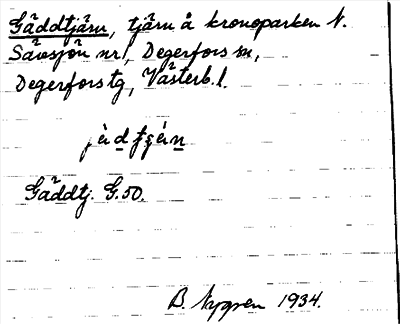 Gäddtjärn, tjärn å kronoparken N.
Sävsjön nr 1, Degerfors sn,
Degerfors tg, Västerb. l.
Gäddtj. G.50.
B. Nygren 1934.